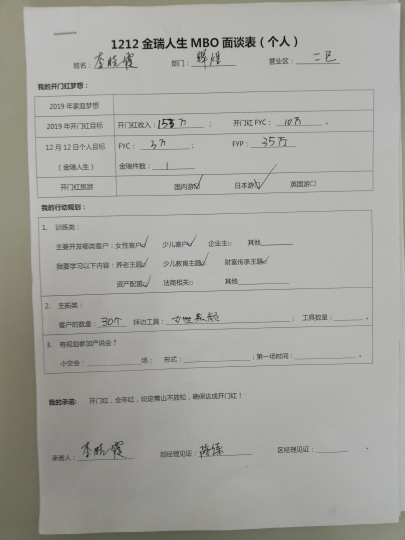 1212 金瑞人生 MBO 面谈表（个人）
姓名：李晓霞 部门：辉煌 营业区：二区
我的开门红梦想：
2019 年家庭梦想
2019 年开门红目标 开门红收入：15万 ； 开门红 FYC：10万 。
12 月 12 日个人目标（金瑞人生） FYC：3万 ； FYP：35万
金瑞件数：1
开门红旅游 国内游☑ 日本游☑ 英国游□
我的行动规划：
1. 训练类：
主要开发哪类客户：女性客户✓ 少儿客户✓ 企业主□ 其他
我要学习以下内容：养老主题✓ 少儿教育主题✓ 财富传承主题✓
资产配置✓ 法商相关□ 其他
2. 主拓类：
客户的数量：30个 拜访工具：女性 ；工具数量： 。
3. 有规划参加产说会？
小交会： 场； 形式： ；第一场时间： 。
我的承诺： 开门红，全年红，咬定青山不放松，确保达成开门红！
承诺人：李晓霞 部经理见证： 区经理见证： 。